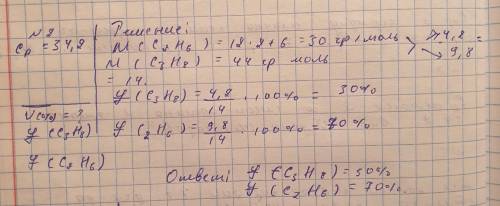 № 2
Cp = 34,2
V(C%) = ?
φ (C3H8)
φ (C2H6)
Решение:
М (C2H6) = 12 · 2 + 6 = 30 гр / моль
М (C3H8) = 44 гр моль
4,2 =
9,8
= 14.
φ (C3H8) = 4,2 / 14 · 100% = 30%
φ (2H6) = 9,8 / 14 · 100% = 70%
Ответ: φ (C3H8) = 30%
φ (C2H6) = 70%.